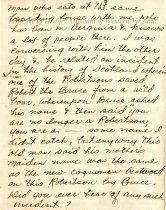 man who sat at the same
boarding house with me, who
has been in Virginia & knows
a lot of people there. I was
conversing with him the other
day & he related an incident
in the history of Scotland where
one of the Robertsons saved
Robert the Bruce from a wild
boar, whereupon Bruce asked
his name & then said you
are no longer a Robertson,
you are a some name I
didn't catch, but anyway this
old man said his mothers
maiden name was the same
as the new cognomen bestowed
on this Robertson by Bruce.
Did you ever hear of any such
incident?